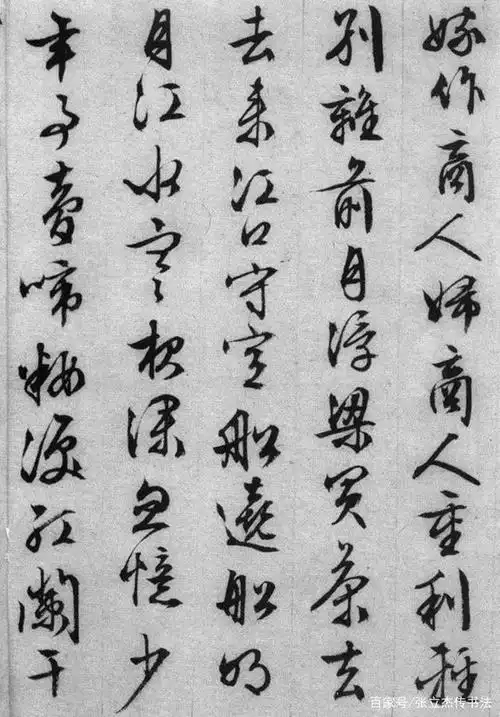 嫁作商人婦商人重利輕
別離前月浮梁買茶去
去来江口守空船遶船明
月江水寒夜深忽憶少
年事夢啼粧淚紅闌干
百家号/张立杰传书法